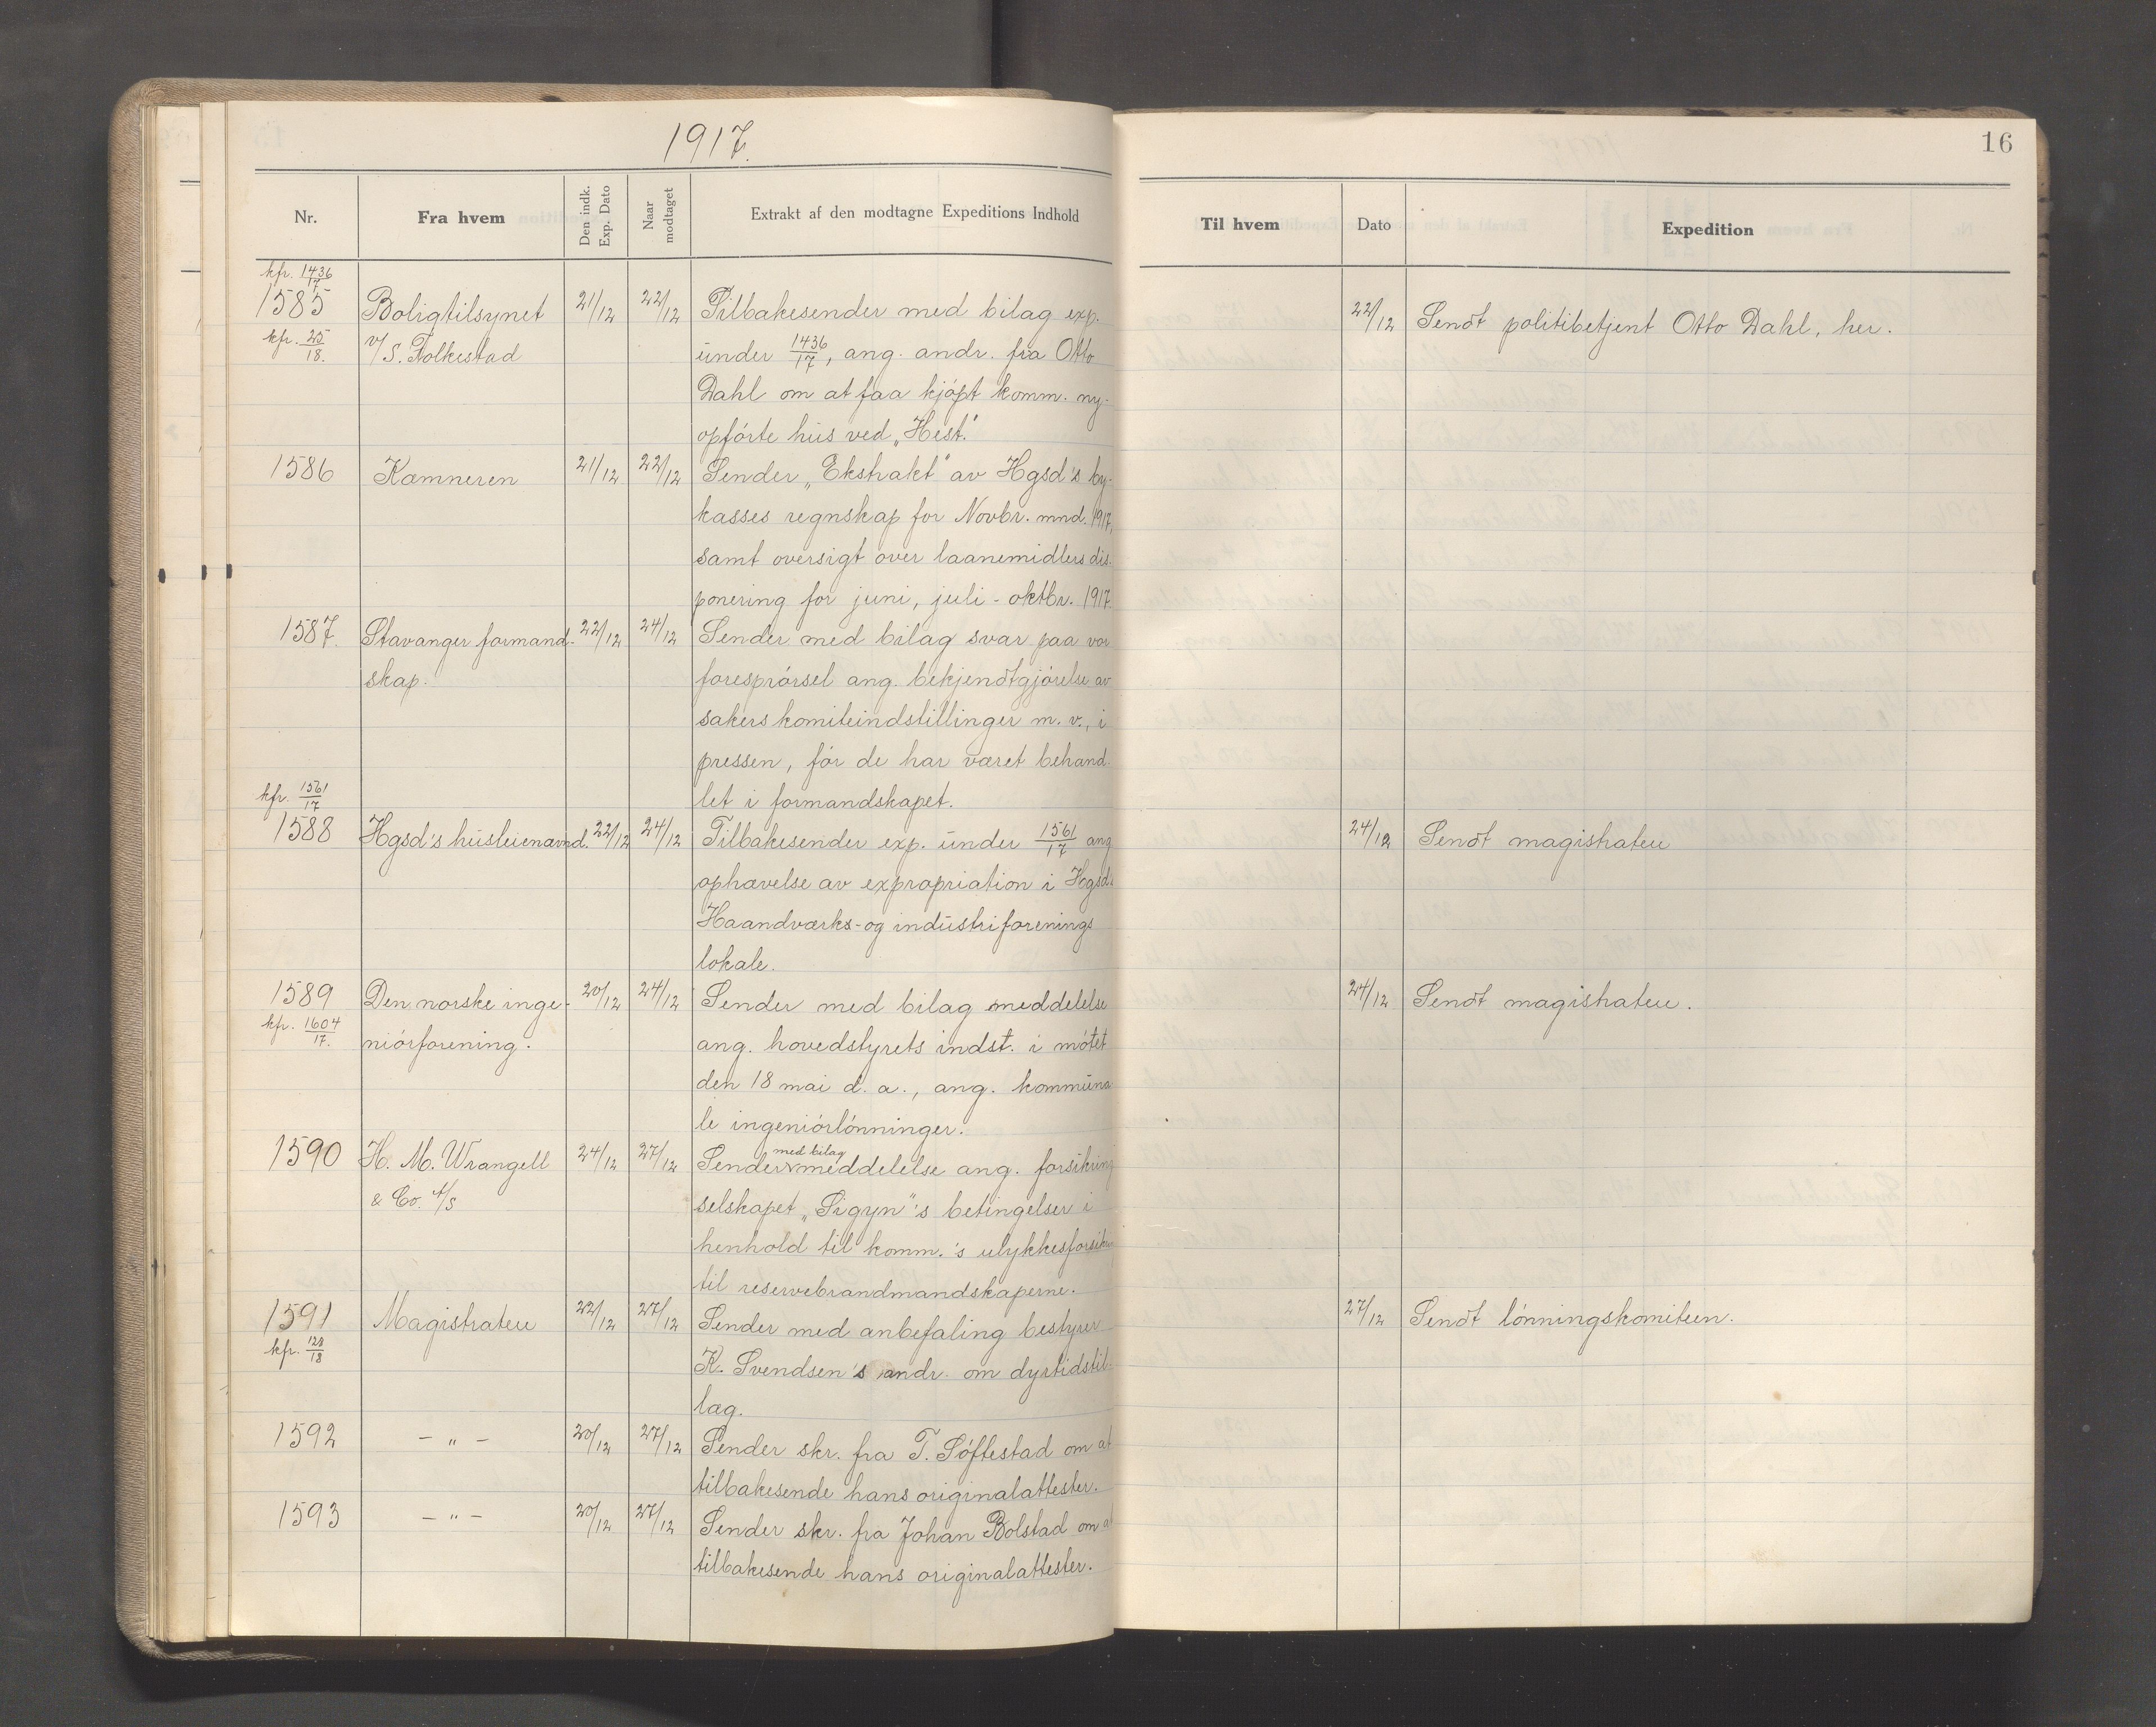 1917.
16
Nr.
Fra hvem
Den indk. Exp. Dato
Naar modtaget
Extrakt af den modtagne Expeditions Indhold
Til hvem
Dato
Expedition
kfr. 1436/17
1585 Boligtilsynet 21/12 22/12 Tilbakesender med bilag exp. 22/12 Sendt politibetjent Otto Dahl, her.
kfr. 25/18. v/ S. Folkestad under 1436/17, ang. andr. fra Otto
Dahl om at faa kjøpt komm. ny-
opførte hus ved „Hest."
1586 Kæmneren 21/12 22/12 Sender „Ekstrakt" av Hgsd's by-
kasses regnskap for Novbr. mnd. 1917,
samt oversigt over laanemidlers dis-
ponering for juni, juli - oktbr. 1917.
1587. Stavanger formand- 22/12 24/12 Sender med bilag svar paa vor
skap. forespørsel ang. bekjendtgjørelse av
sakers komiteindstillinger m. v., i
pressen, før de har været behand-
let i formandskapet.
kfr. 1561/17
1588 Hgsd's husleienævnd. 22/12 24/12 Tilbakesender exp. under 1561/17 ang 24/12 Sendt magistraten
ophævelse av expropriation i Hgsd's
Haandværks- og industriforenings
lokale.
1589 Den norske inge- 20/12 24/12 Sender med bilag meddelelse 24/12 Sendt magistraten.
kfr. 1604/17. niørforening. ang. hovedstyrets indst. i møtet
den 18 mai d. a., ang. kommuna-
le ingeniørlønninger.
1590 H. M. Wrangell 24/12 27/12 Sender med bilag meddelelse ang. forsikring
& Co. A/S selskapet „Sigyn"'s betingelser i
henhold til komm.'s ulykkesforsikr.
til reservebrandmandskaperne.
1591 Magistraten 22/12 27/12 Sender med anbefaling bestyrer 27/12 Sendt lønningskomiteen.
kfr. 124/18 K. Svendsen's andr. om dyrtidstil-
læg.
1592 - " - 20/12 27/12 Sender skr. fra T. Søftestad om at
tilbakesende hans originalattester.
1593 - " - 20/12 27/12 Sender skr. fra Johan Bolstad om at
tilbakesende hans originalattester.